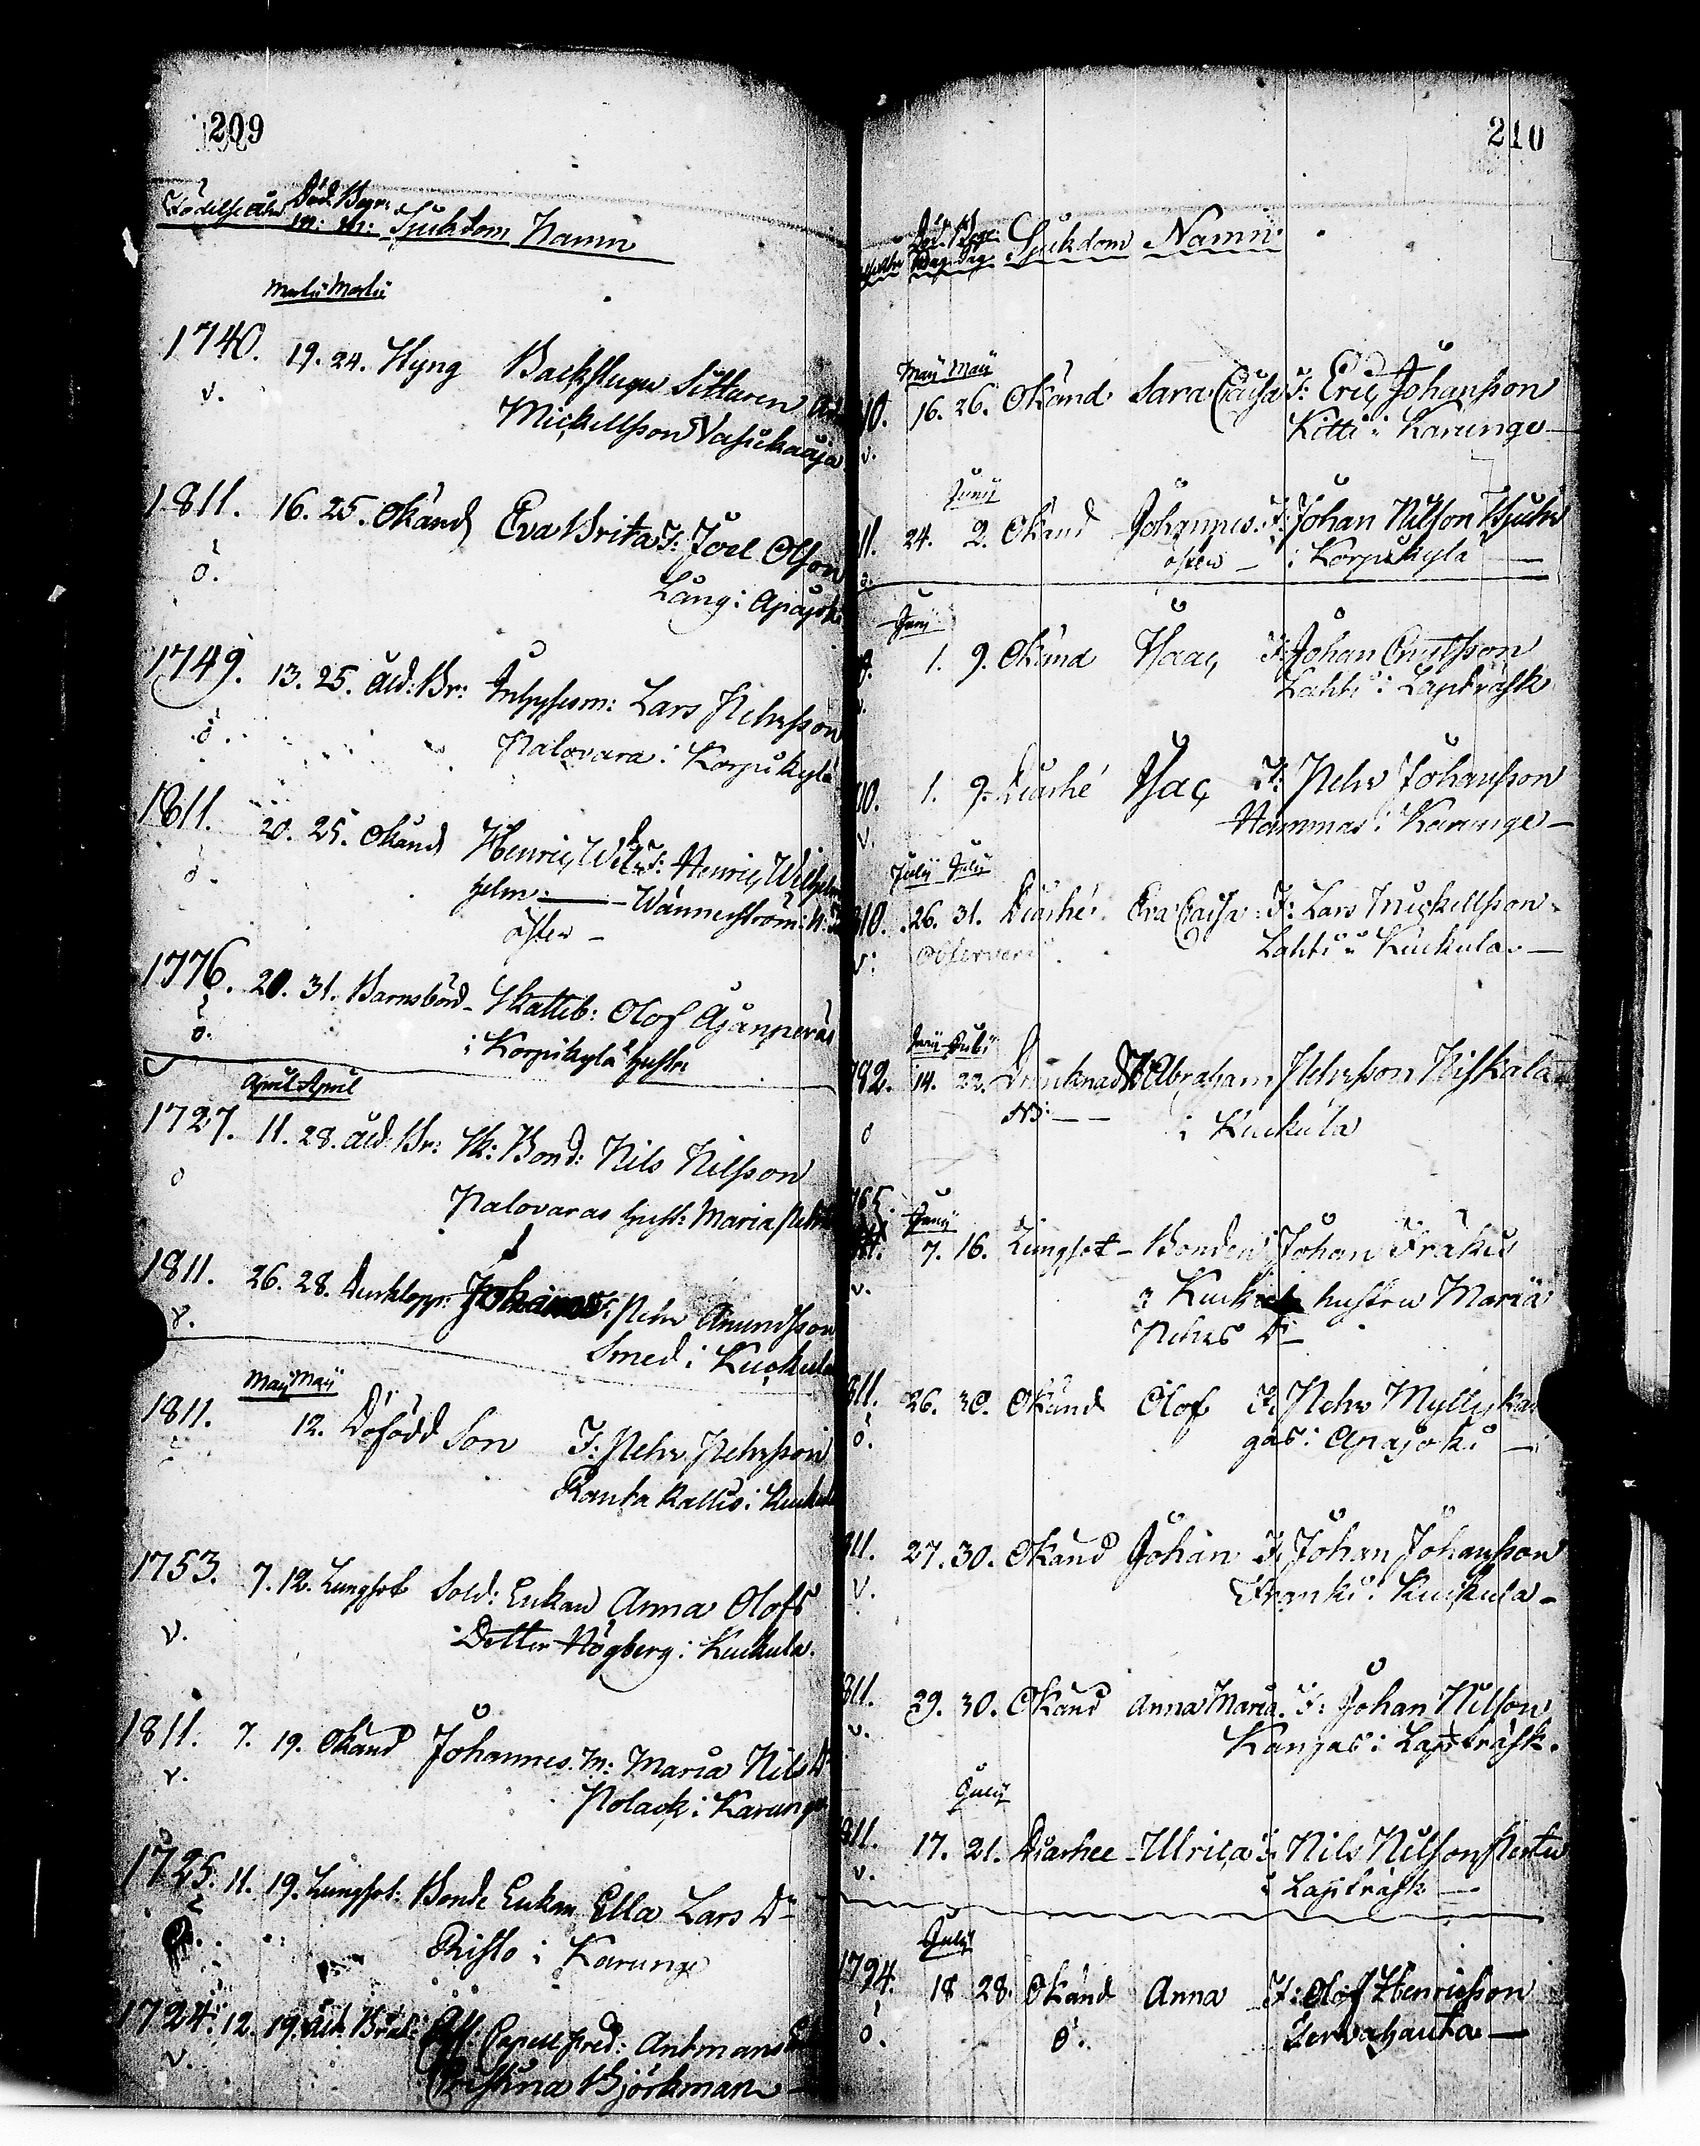 209
Födelse åhr Död. Begr.
m: m: Sjukdom Namn
Martii Martii
1740. 19. 24. Styng Backstugu Sittaren
v. Mickellsson Vasickaája
1811. 16. 25. Okänd Eva Brita F: Joel Olsson
ö. Lång i Apajoki
1749. 13. 25. Åld: Br: Inhysesm: Lars Pehrsson
ö. Palovara i Korpikylä
1811. 20. 25. Okänd Henric Wil F: Henric Wilhelm
ö. helm Wännerström
öster
1776. 20. 31. Barnsbörd Skatteb: Olof Ajanperäs
ö. i Korpikylä hustru
April April
1727. 11. 28. Åld: Br: Sk: Bond: Nils Nilsson
ö Palovaras hust: Maria
1811. 26. 28. Johannes F: Pehr Amundsson
v. Smed i Kuckula
Maÿ Maÿ
1811. 12. Döfödd Son F: Pehr Pehrsson
Rantakallis i Kuckula
1753. 7. 12. Lungsot Sold: Enkan Anna Olofs
v. Dotter Högberg i Kuckula.
1811. 7. 19. Okänd Johannes. M: Maria Nils Dr
v. Polack i Karunge
1725. 11. 19. Lungsot: Bonde Enkan Ella Lars Dr
Risto i Karunge
1724. 12. 19. Åld. Bräck: Capell pred: Antmans
v. Christina Björkman
210
Död. Begr: Sjukdom Namn
dag. dag
Maÿ Maÿ
10. 16. 26. Okänd Sara Caisa F: Eric Johansson
v. Kitti i Karunge
Junÿ
11. 24. 2. Okänd Johannes. F: Johan Nilsson
ö. öster i Korpikylä
Junÿ
1. 9. Okänd Isaac F: Johan
Lahti i Lapträsk
10. 1. 9. Diarhé Isac F: Pehr Johansson
v. Hammas i Karunge
Julÿ Julÿ
810. 26. 31. Diarhé. Eva Caisa F: Lars Mickellsson
v: Observera Lahti i Kuckula
792. 14. 22. Drunknad Abraham Pehrsson Niskala
ö NB: i Kuckula
765. Junÿ
7. 16. Lungsot Bonden Johan Fräkis
v. i Kuckula hustru Maria
Pehrs Dr
811. 26. 30. Okänd Olof F: Pehr Myllykan
ö. gas i Apajoki
811. 27. 30. Okänd Johan F: Johan Johansson
v. Franki i Kuckula
811. 29. 30. Okänd Anna Maria. F: Johan Nilsson
v. Kangas i Lapträsk.
Julÿ
811. 17. 21. Diarhee Ulrica F: Nils Nilsson Pertu
v. i Lapträsk
Julÿ
1794. 18 28. Okänd Anna F: Olof Henricsson
ö. ö. Tervahauta